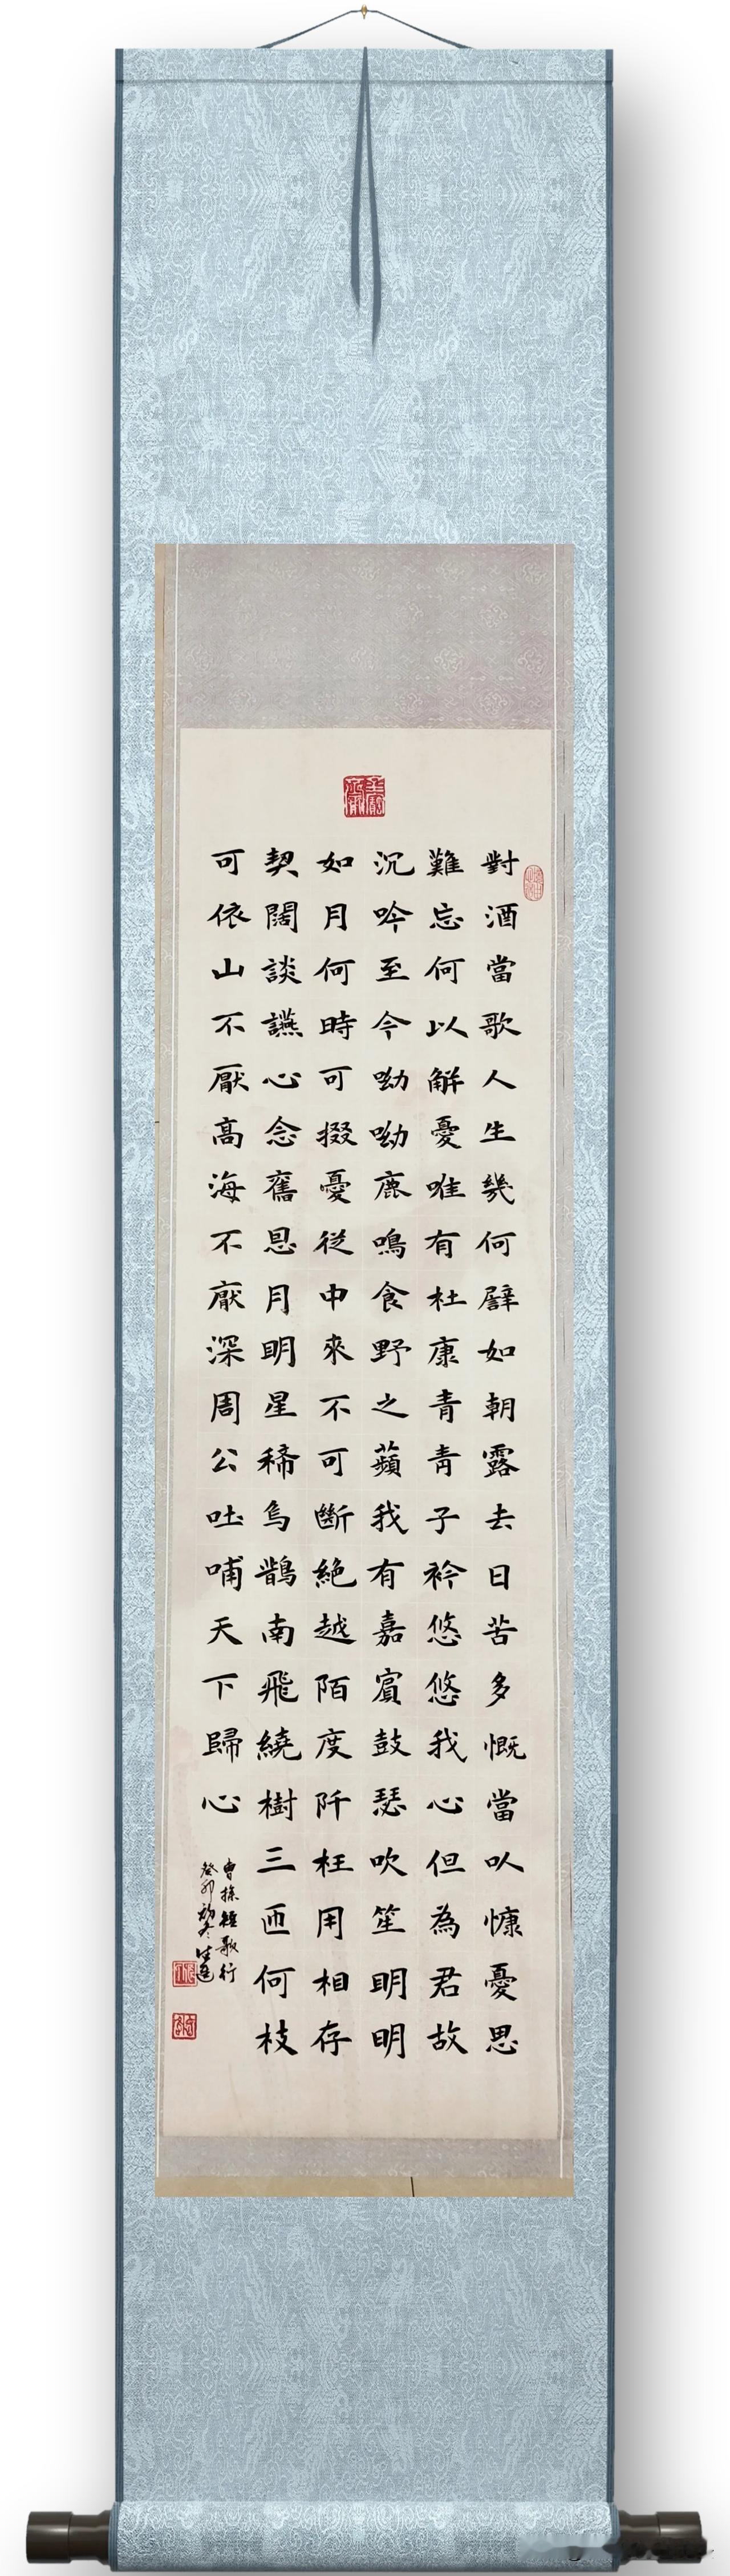 對酒當歌人生幾何譬如朝露去日苦多慨當以慷憂思
難忘何以解憂唯有杜康青青子衿悠悠我心但為君故
沉吟至今呦呦鹿鳴食野之蘋我有嘉賓鼓瑟吹笙明明
如月何時可掇憂從中來不可斷絕越陌度阡枉用相存
契闊談讌心念舊恩月明星稀烏鵲南飛繞樹三匝何枝
可依山不厭高海不厭深周公吐哺天下歸心
曹操短歌行
癸卯初冬